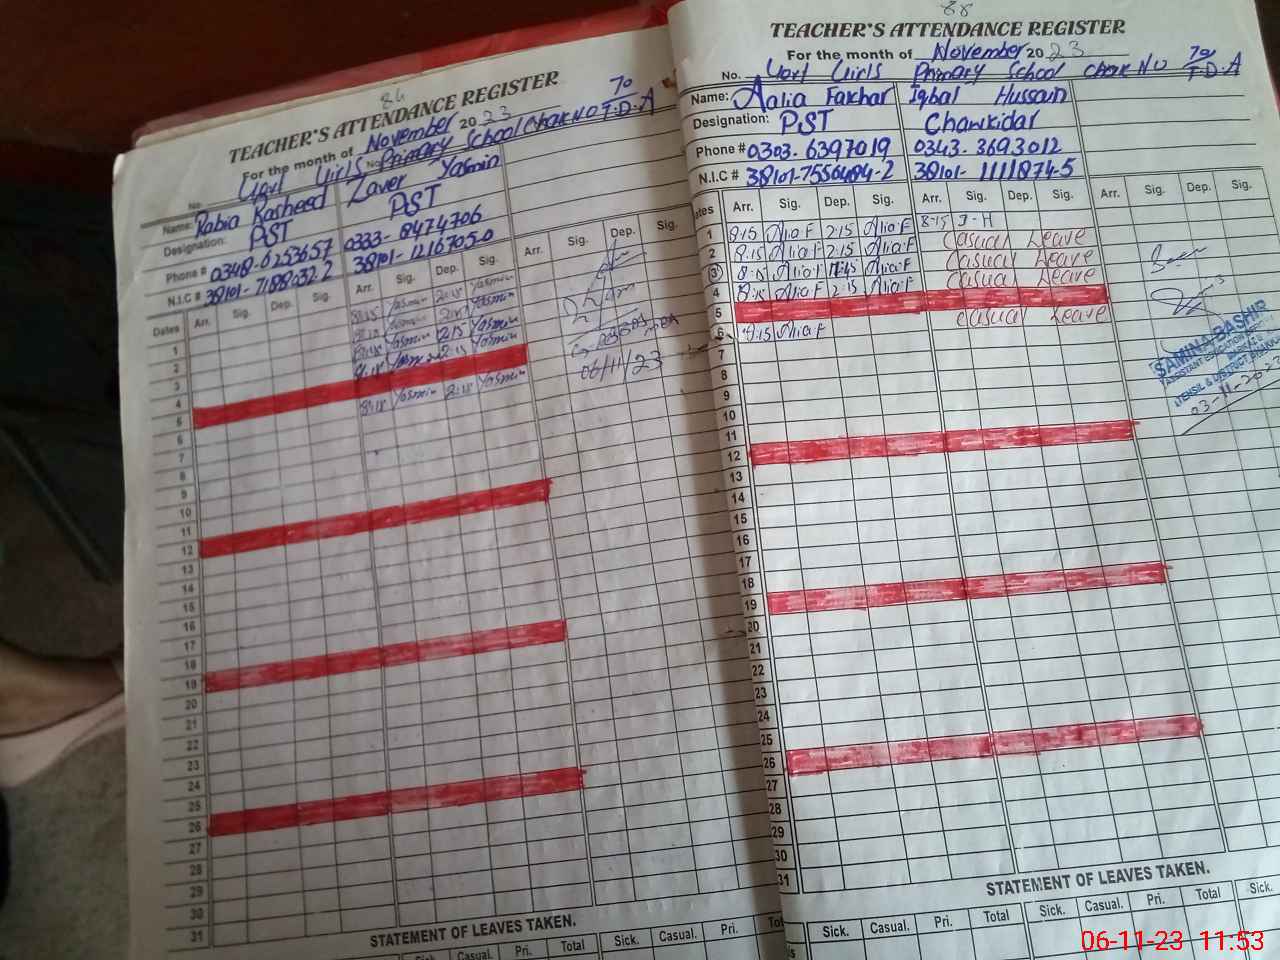 86
TEACHER'S ATTENDANCE REGISTER
For the month of November 2023
No. Govt Girls Primary School Chak NO 70/T.D.A
Name: Rabia Rasheed Zaver Yasmin
Designation: PST PST
Phone # 0348-6253657 0333-8474706
N.I.C # 38101-7188032-2 38101-1216705-0
Dates Arr. Sig. Dep. Sig. Arr. Sig. Dep. Sig. Arr. Sig. Dep. Sig.
1 8:15 Yasmin 2:15 Yasmin
2 8:15 Yasmin 2:15 Yasmin
3 8:15 Yasmin 2:15 Yasmin
4 8:15 Yasmin 2:15 Yasmin
5
6 8:15 Yasmin 2:15 Yasmin
06/11/23
7
8
9
10
11
12
13
14
15
16
17
18
19
20
21
22
23
24
25
26
27
28
29
30
31
STATEMENT OF LEAVES TAKEN.
Sick. Casual. Pri. Total Sick. Casual. Pri.
88
TEACHER'S ATTENDANCE REGISTER
For the month of November 2023
No. Govt Girls Primary School Chak NO 70/T.D.A
Name: Aalia Fakhar Iqbal Hussain
Designation: PST Chawkidar
Phone # 0303-6397019 0343-3693012
N.I.C # 38101-7556484-2 38101-1111874-5
Dates Arr. Sig. Dep. Sig. Arr. Sig. Dep. Sig. Arr. Sig. Dep. Sig.
1 8:15 Alia F 2:15 Alia F 8:15 I-H
2 8:15 Alia F 2:15 Alia F Casual Leave
3 8:15 Alia F 11:45 Alia F Casual Leave
4 8:15 Alia F 2:15 Alia F Casual Leave
5
6 8:15 Alia F Casual Leave
SAMINA BASHIR
03-11-202
7
8
9
10
11
12
13
14
15
16
17
18
19
20
21
22
23
24
25
26
27
28
29
30
31
STATEMENT OF LEAVES TAKEN.
Sick. Casual. Pri. Total Sick. Casual. Pri. Total Sick.
06-11-23 11:53